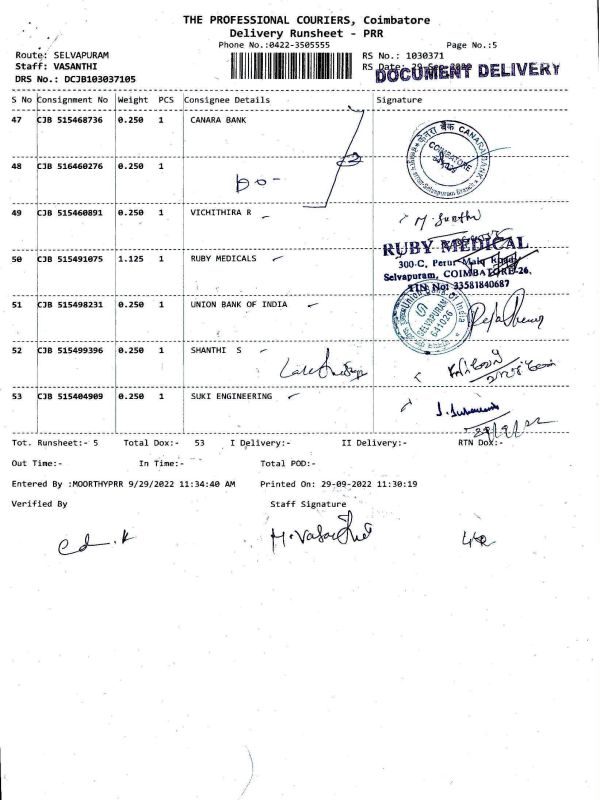 THE PROFESSIONAL COURIERS, Coimbatore
Delivery Runsheet - PRR
Phone No.:0422-3505555 Page No.:5
Route: SELVAPURAM RS No.: 1030371
Staff: VASANTHI RS Date: 29-Sep-2022
DOCUMENT DELIVERY
DRS No.: DCJB103037105
S No Consignment No Weight PCS Consignee Details Signature
47 CJB 515468736 0.250 1 CANARA BANK
48 CJB 516460276 0.250 1
DO-
49 CJB 515460891 0.250 1 VICHITHIRA R
RUBY MEDICAL
50 CJB 515491075 1.125 1 RUBY MEDICALS
300-C, Perur Main Road,
Selvapuram, COIMBATORE-26.
TIN No: 33581840687
51 CJB 515498231 0.250 1 UNION BANK OF INDIA
Union Bank of India
SELVAPURAM
641026
52 CJB 515499396 0.250 1 SHANTHI S
53 CJB 515404909 0.250 1 SUKI ENGINEERING
29/9/22
Tot. Runsheet:- 5 Total Dox:- 53 I Delivery:- II Delivery:- RTN Dox:-
Out Time:- In Time:- Total POD:-
Entered By :MOORTHYPRR 9/29/2022 11:34:40 AM Printed On: 29-09-2022 11:30:19
Verified By Staff Signature
M.Vasanthi